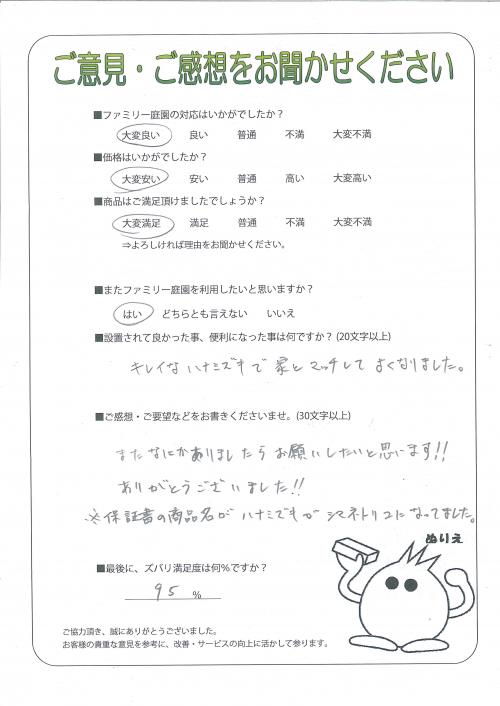 ご意見・ご感想をお聞かせください
■ファミリー庭園の対応はいかがでしたか？
大変良い 良い 普通 不満 大変不満
■価格はいかがでしたか？
大変安い 安い 普通 高い 大変高い
■商品はご満足頂けましたでしょうか？
大変満足 満足 普通 不満 大変不満
⇒よろしければ理由をお聞かせください。
■またファミリー庭園を利用したいと思いますか？
はい どちらとも言えない いいえ
■設置されて良かった事、便利になった事は何ですか？(20文字以上)
キレイなハナミズキで家とマッチしてよくなりました。
■ご感想・ご要望などをお書きくださいませ。(30文字以上)
またなにかありましたらお願いしたいと思います!!
ありがとうございました!!
※保証書の商品名がハナミズキがシマネトリコになってました。
ぬりえ
■最後に、ズバリ満足度は何％ですか？
95 %
ご協力頂き、誠にありがとうございました。
お客様の貴重な意見を参考に、改善・サービスの向上に活かして参ります。